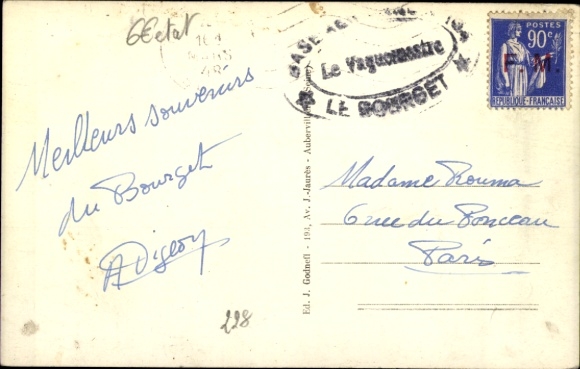 6€ etat
BASE AERIENNE
Le Vaguemestre
LE BOURGET
POSTES
90c
F. M.
REPUBLIQUE-FRANÇAISE
Meilleurs souvenirs
du Bourget
ADigeon
Ed. J. Godneff - 194, Av. J.-Jaurès - Aubervilliers (Seine)
Madame Rouma
6 rue du Ponceau
Paris
228